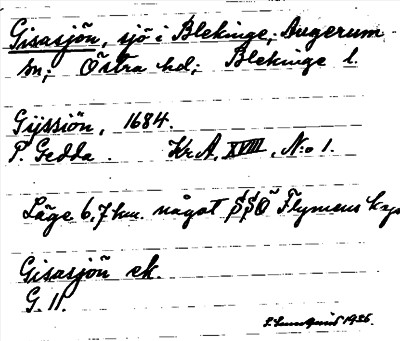 Gisasjön, sjö i Blekinge; Augerum
sn; Östra hd; Blekinge l.
Gijssiön, 1684.
P. Gedda. Kr.A, XVIII, N:o 1.
Läge 6,7 km. något SSÖ Flymens k:a
Gisasjön ek.
G. 11.
1936.